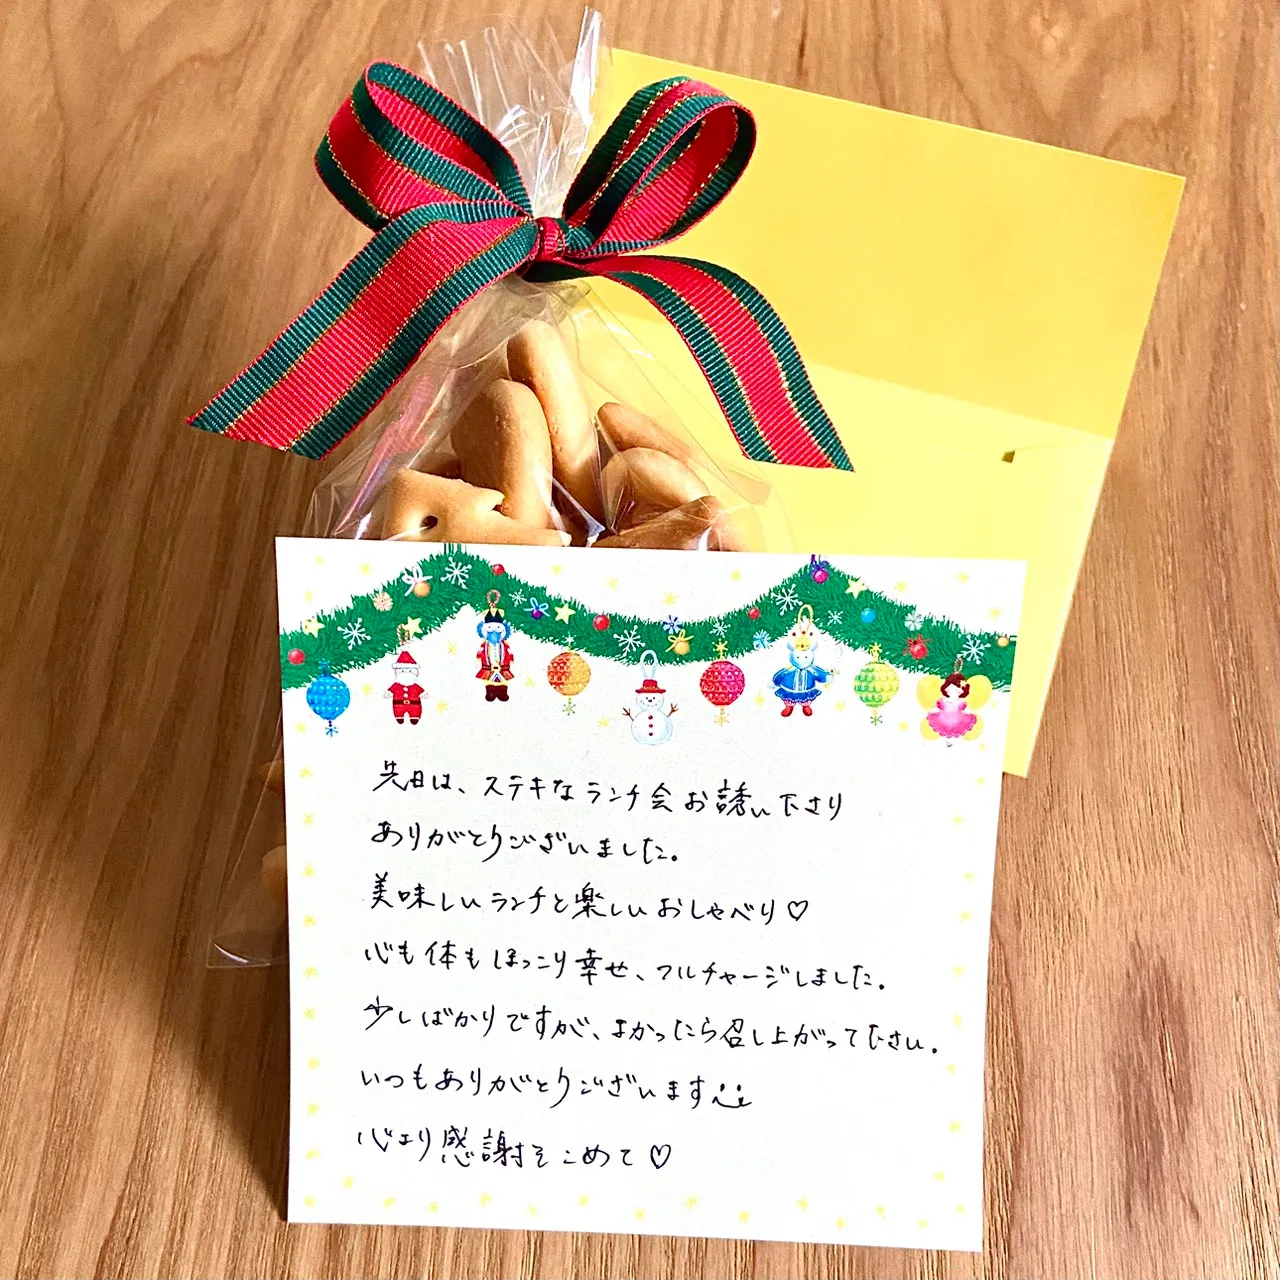 先日は、ステキなランチ会お誘い下さり
ありがとうございました。
美味しいランチと楽しいおしゃべり♡
心も体もほっこり幸せ、フルチャージしました。
少しばかりですが、よかったら召し上がって下さい。
いつもありがとうございます
心より感謝をこめて♡